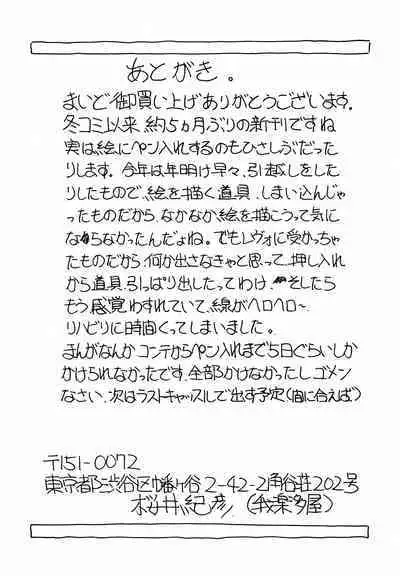 あとがき。
まいど御買い上げありがとうございます。
冬コミ以来、約5ヵ月ぶりの新刊ですね
実は絵にペン入れするのもひさしぶりだった
りします。今年は年明け早々、引越しをした
りしたもので、絵を描く道具、しまい込んじゃ
ったものだから、なかなか絵を描こうって気に
ならなかったんだよね。でもレヴォに受かっちゃ
たものだから、何か出さなきゃと思って、押し入れ
から道具、引っぱり出したってわけ、そしたら
もう感覚わすれていて、線がヘロヘロ〜
リハビリに時間くってしまいました。
まんがなんか コンテからペン入れまで5日ぐらいしか
かけられなかったです、全部かけなかったし、ゴメン
なさい、次はラストキャッスルで出す予定(間に合えば)
〒151-0072
東京都渋谷区幡ヶ谷2-42-2角谷荘202号
桜井紀彦(我楽多屋)